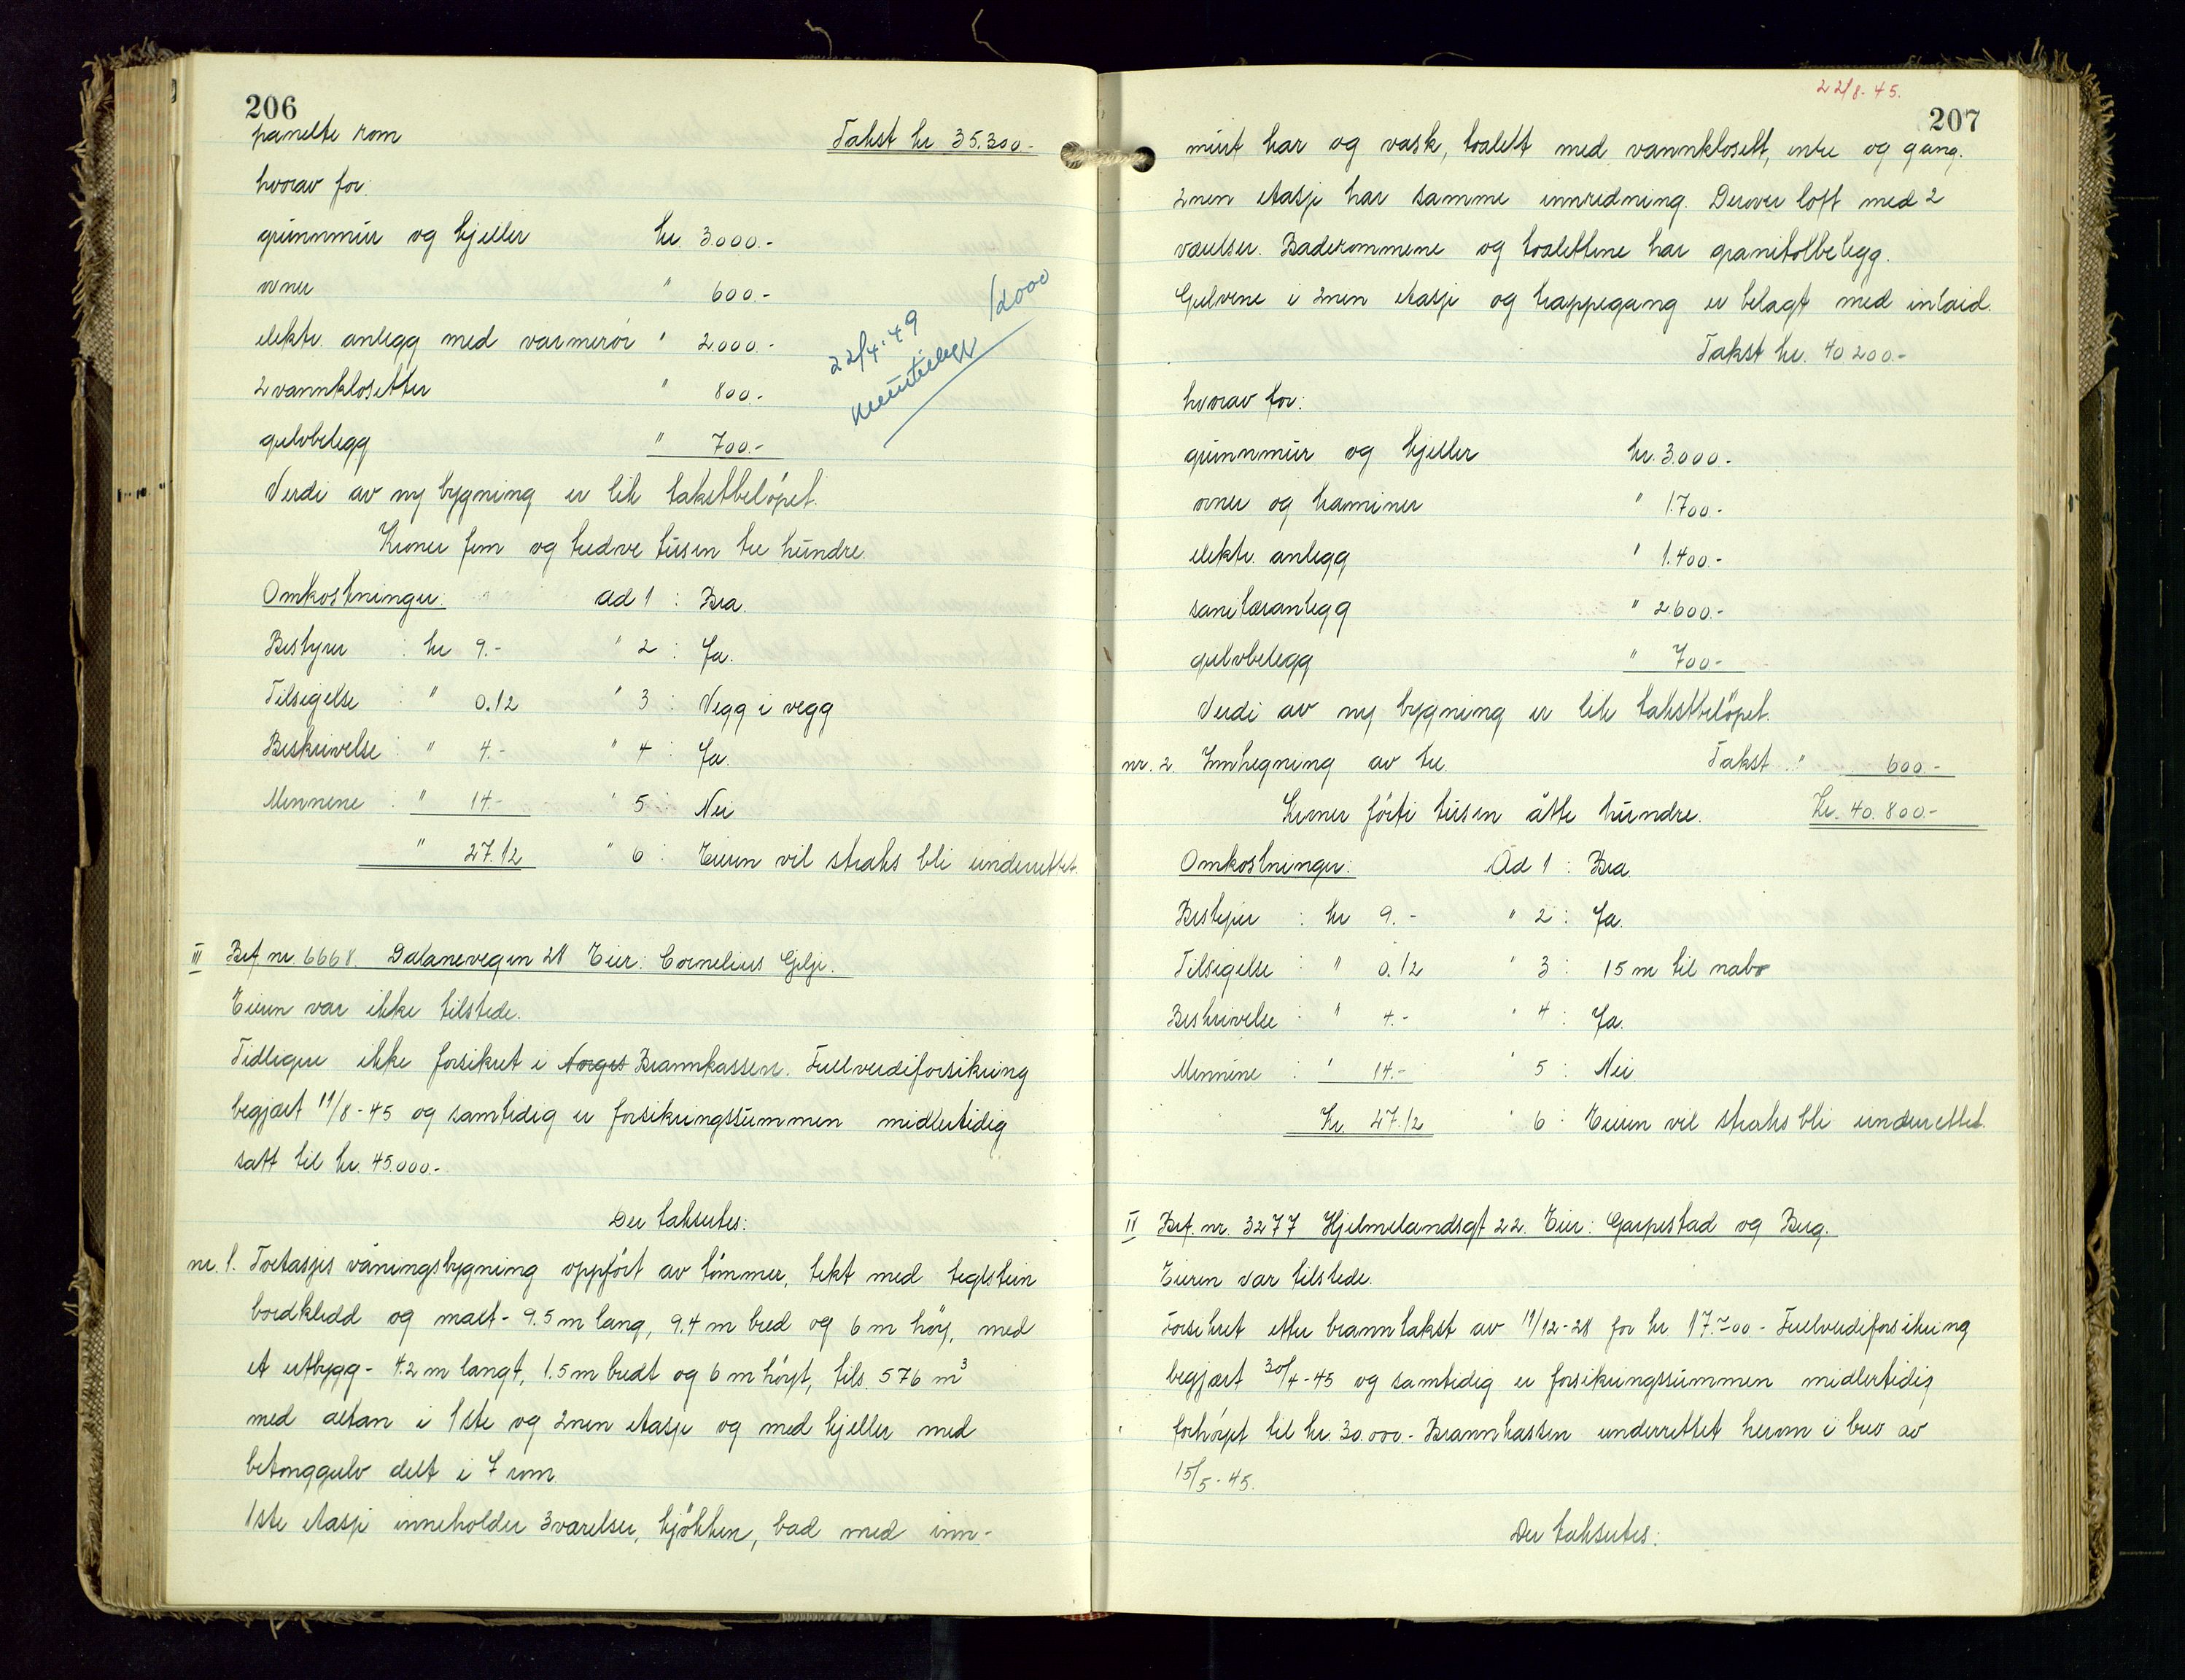 206
panelte rom Takst kr 35.300.-
hvorav for:
grunnmur og kjeller kr. 3.000.-
ovner " 600.-
elektr. anlegg med varmerør " 2.000.-
2 vannklosetter " 800.-
gulvbelegg " 700.-
22/4.49
12000
Verdi av ny bygning er lik takstbeløpet.
Kroner fem og tredve tusen tre hundre.
Omkostninger: ad 1 : Bra.
Bestyrer : kr 9.- " 2 : Ja.
Tilsigelse : " 0.12 " 3 : Vegg i vegg
Beskrivelse : " 4.- " 4 : Ja.
Mennene : " 14.- " 5 : Nei
" 27.12 " 6 : Eieren vil straks bli underrettet.
III Brf. nr. 6668. Dalaneveg​en 28 Eier: Cornelius Gilje.
Eieren var ikke tilstede.
Tidligere ikke forsikret i Norges Brannkassen. Fullverdiforsikring
begjært 11/8-45 og samtidig er forsikringssummen midlertidig
satt til kr. 45.000.-
Der takseres:
nr. 1. Toetasjes våningsbygning oppført av tømmer, tekt med teglstein
bordkledd og malt - 9.5 m lang, 9.4 m bred og 6 m høy, med
et utbygg - 4.2 m langt, 1.5 m bredt og 6 m høyt, tils. 576 m³
med altan i 1ste og 2nen etasje og med kjeller med
betonggulv delt i 7 rom.
1ste etasje inneholder 3 værelser, kjøkken, bad med inn-
22/8-45.
207
murt kar og vask, toalett med vannklosett, entre og gang.
2nen etasje har samme innredning. Derover loft med 2
værelser. Baderommene og toalettene har granitolbelegg.
Gulvene i 2nen etasje og trappegang er belagt med inlaid.
Takst kr. 40 200.-
hvorav for:
grunnmur og kjeller kr. 3.000.-
ovner og kaminer " 1.700.-
elektr. anlegg " 1.400.-
sanitæranlegg " 2.600.-
gulvbelegg " 700.-
Verdi av ny bygning er lik takstbeløpet.
nr. 2. Innhegning av tre. Takst " 600.-
Kroner førti tusen åtte hundre. Kr. 40.800.-
Omkostninger: Ad 1 : Bra.
Bestyrer : kr 9.- " 2 : Ja.
Tilsigelse : " 0.12 " 3 : 15 m til nabo
Beskrivelse : " 4.- " 4 : Ja.
Mennene : " 14.- " 5 : Nei
Kr. 27.12 " 6 : Eieren vil straks bli underrettet.
IV Brf. nr. 3277 Hjelmelandsgt 22. Eier: Garpestad og Berg.
Eieren var tilstede.
Forsikret etter branntakst av 11/12-28 for kr 17.700.- Fullverdiforsikring
begjært 30/4-45 og samtidig er forsikringssummen midlertidig
forhøyet til kr. 30.000.- Brannkassen underrettet herom i brev av
15/5-45.
Der takseres: